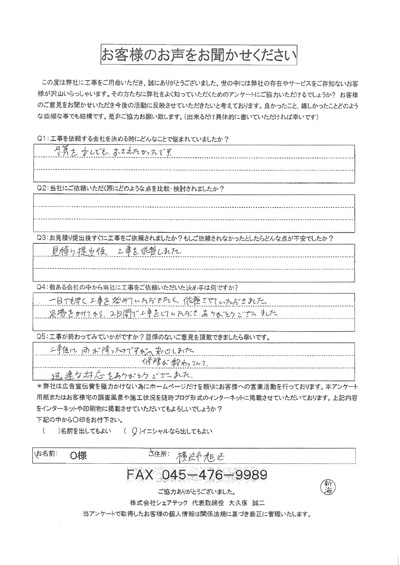 お客様のお声をお聞かせください
この度は弊社に工事をご用命いただき、誠にありがとうございました。世の中には弊社の存在やサービスをご存知ないお客
様が沢山いらっしゃいます。その方たちに弊社をよく知っていただくためのアンケートにご協力いただけるでしょうか？ お客様
のご意見をお聞かせいただき今後の活動に反映させていただきたいと考えております。良かったこと、嬉しかったことどのよう
な些細な事でも結構です。是非ご協力お願い致します。(出来るだけ具体的に書いていただければ幸いです)
Q1:工事を依頼する会社を決める時にどんなことで悩まれていましたか？
予算を少しでも、おさえたかったです。
Q2:当社にご依頼いただく際にどのような点を比較・検討されましたか？
Q3:お見積り提出後すぐに工事をご依頼されましたか？もしご依頼されなかったとしたらどんな点が不安でしたか？
見積り提出後、工事を依頼しました。
Q4:数ある会社の中から当社に工事をご依頼いただいた決め手は何ですか？
一日でも早く工事を始めていただきたく、依頼させていただきました。
足場をかけてから、2日間で工事をしていただき ありがとうございました
Q5:工事が終わってみていかがですか？忌憚のないご意見を頂戴できましたら幸いです。
工事後に雨が降ったのですが、安心しました。
迅速な対応をありがとうございました。
＊弊社は広告宣伝費を極力かけない為にホームページだけを頼りにお客様への営業活動を行っております。本アンケート
用紙またはお客様宅の調査風景や施工状況を随時ブログ形式のインターネットに掲載させていただいております。上記内容
をインターネットや印刷物に掲載させていただいてもよろしいでしょうか？
下記の中から〇印をお付け下さい。
( )名前を出してもよい (〇)イニシャルなら出してもよい
お名前: O様 ご住所: 横浜市旭区
FAX 045-476-9989
ご協力ありがとうございました。
株式会社シェアテック 代表取締役 大久保 誠二
当アンケートで取得したお客様の個人情報は関係法規に基づき厳正に管理いたします。